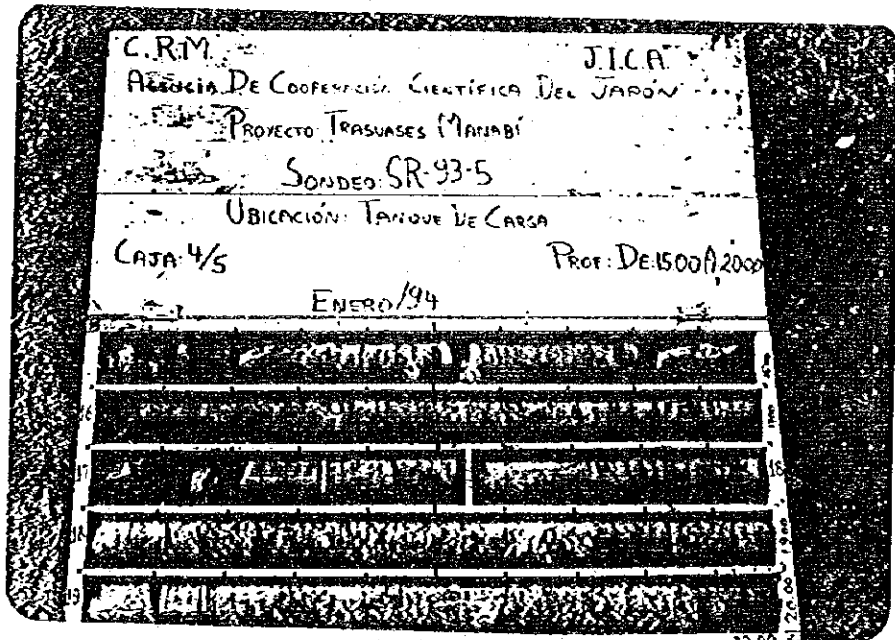 C.R.M. J.I.C.A.
AGENCIA DE COOPERACIÓN CIENTÍFICA DEL JAPÓN
PROYECTO: TRASVASES MANABÍ
SONDEO: SR-93-5
UBICACIÓN: TANQUE DE CARGA
CAJA: 4/5 PROF: DE: 15.00 A 20.00
ENERO/94
16
17 18
18 19.00
19 20.00